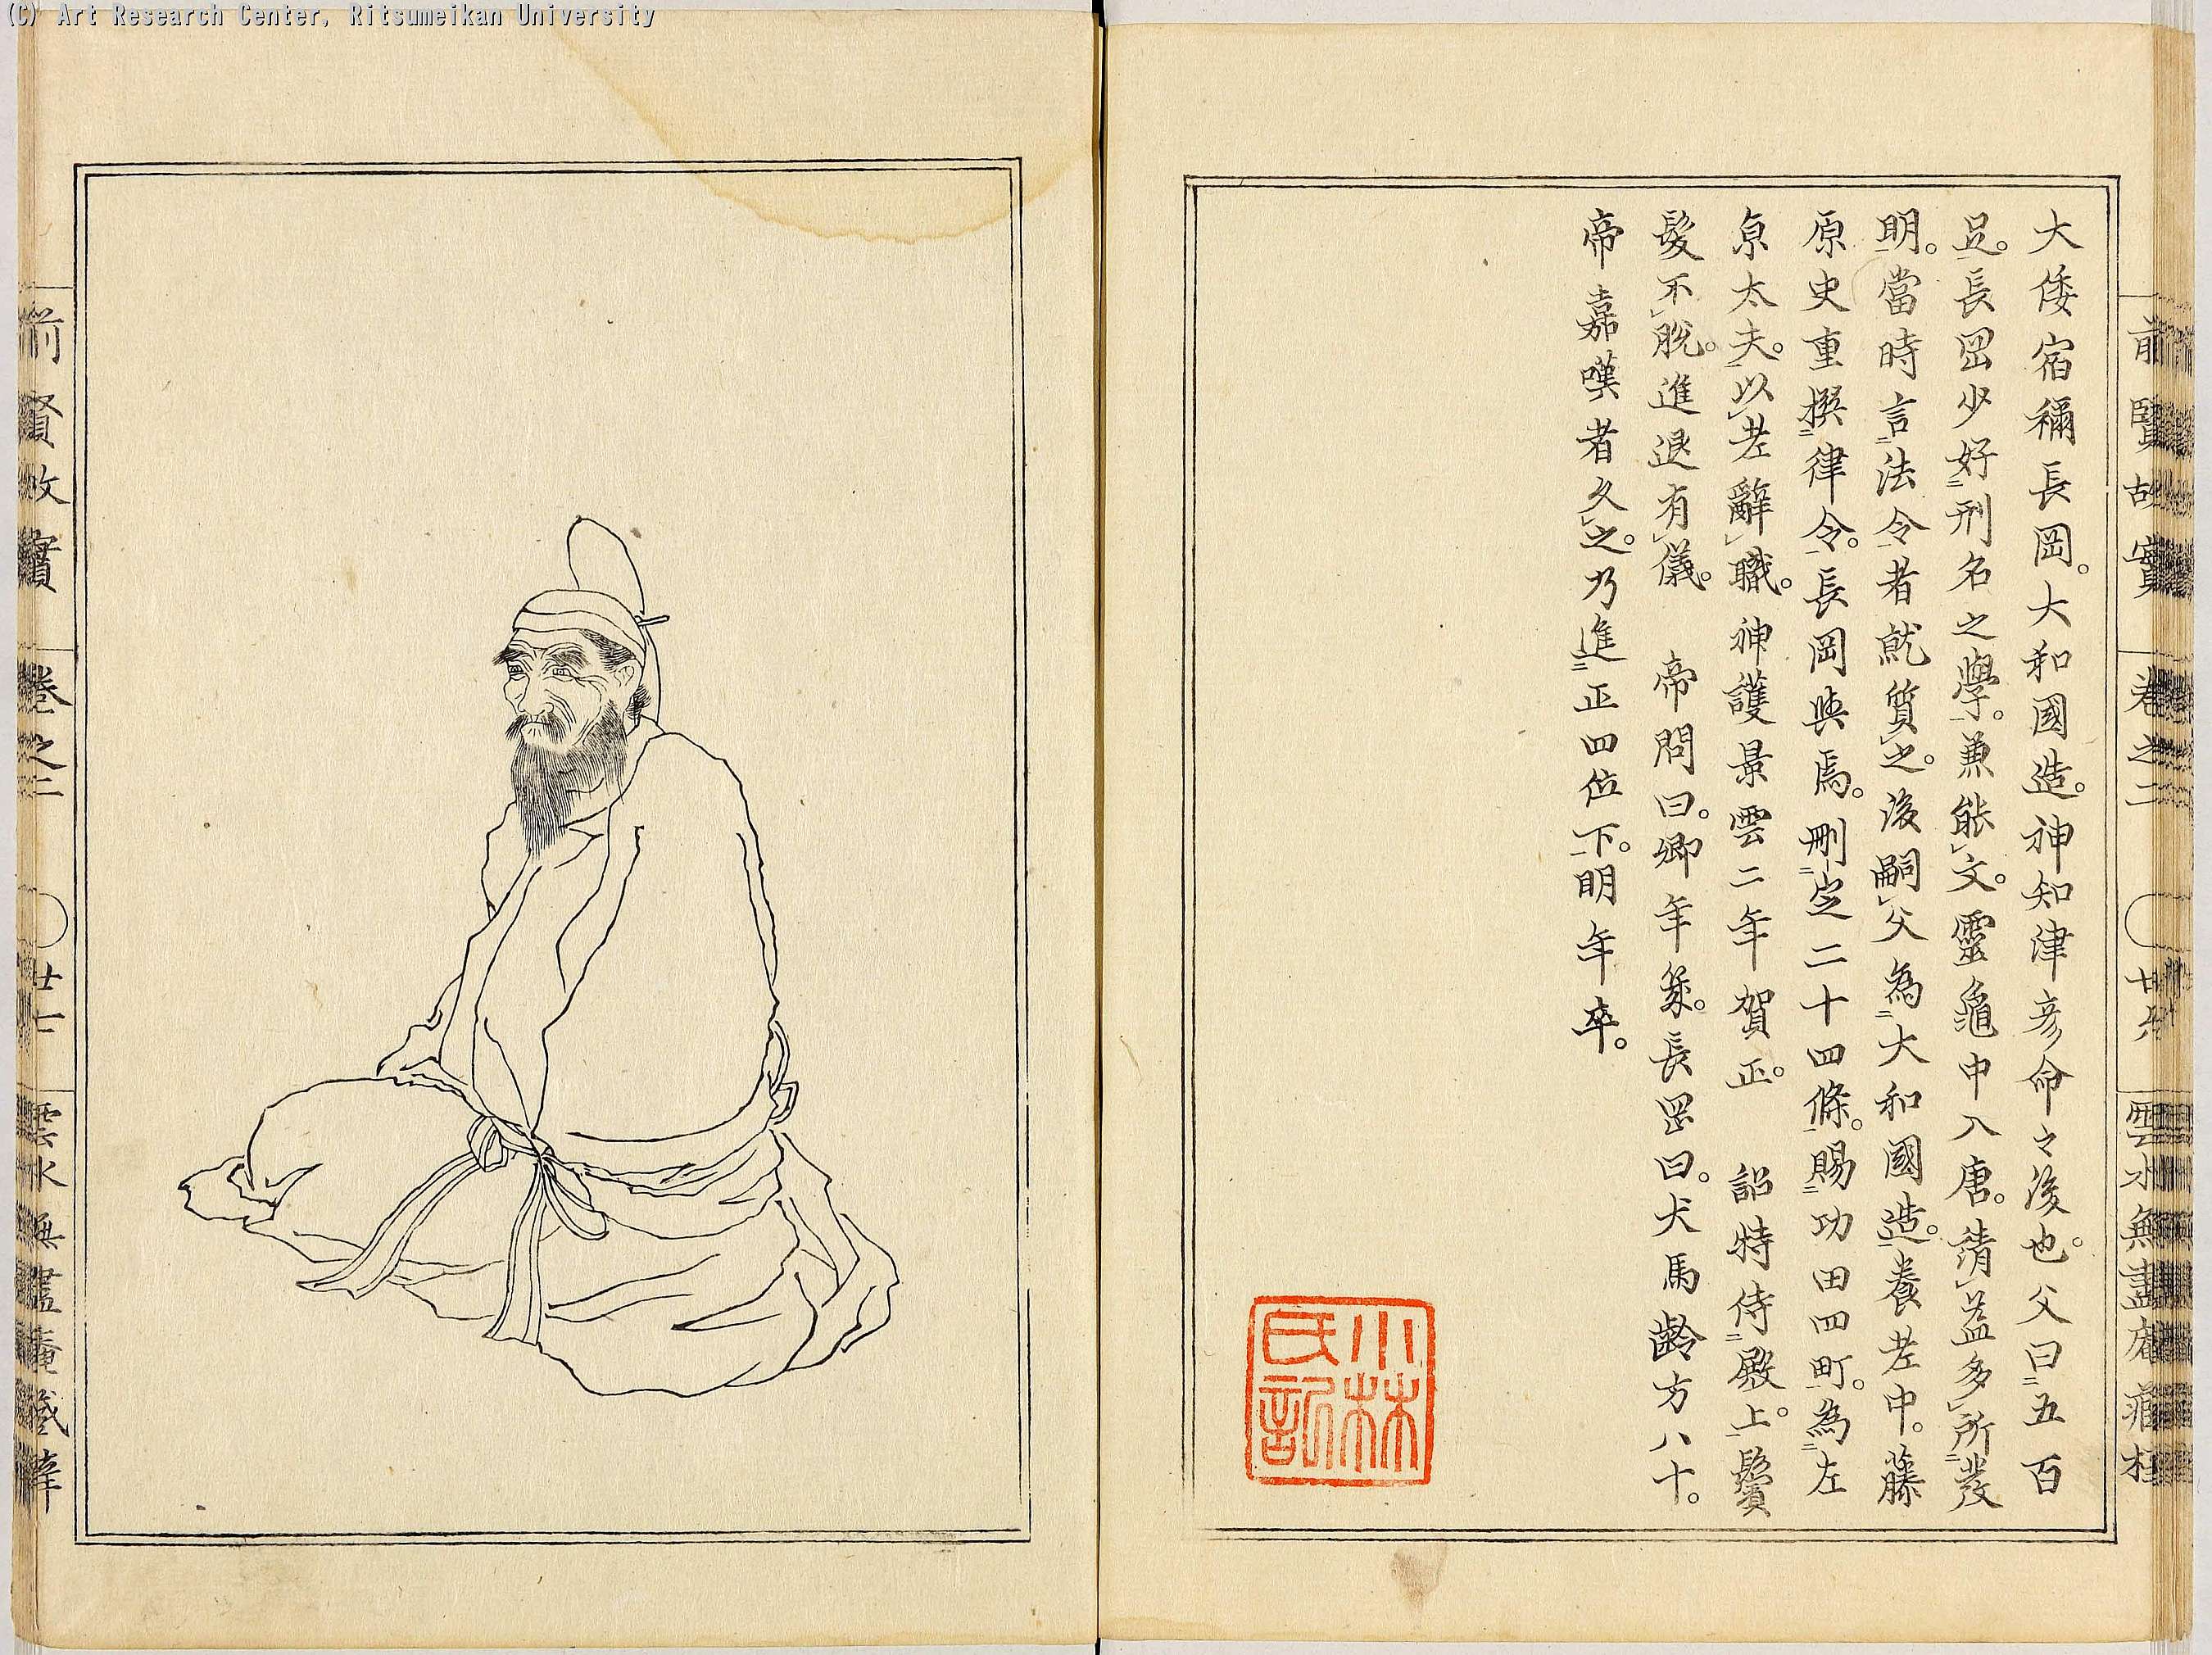 (C) Art Research Center, Ritsumeikan University
前賢故實 卷之二 廿六
大倭宿禰長岡。大和國造。神知津彦命之後也。父曰五百
足。長岡少好刑名之學。兼能文。靈龜中入唐。請益多所發
明。當時言法令者就質之。後嗣父為大和國造。養老中。藤
原史重撰律令。長岡與焉。刪定二十四條。賜功田四町。為左
京太夫。以老辭職。神護景雲二年賀正。 詔特侍殿上。鬢
髮不脫。進退有儀。 帝問曰。卿年幾。長岡曰。犬馬齡方八十。
帝嘉嘆者久之。乃進正四位下。明年卒。
小林
氏記
前賢故實 卷之二 廿七 雲水無盡庵藏梓